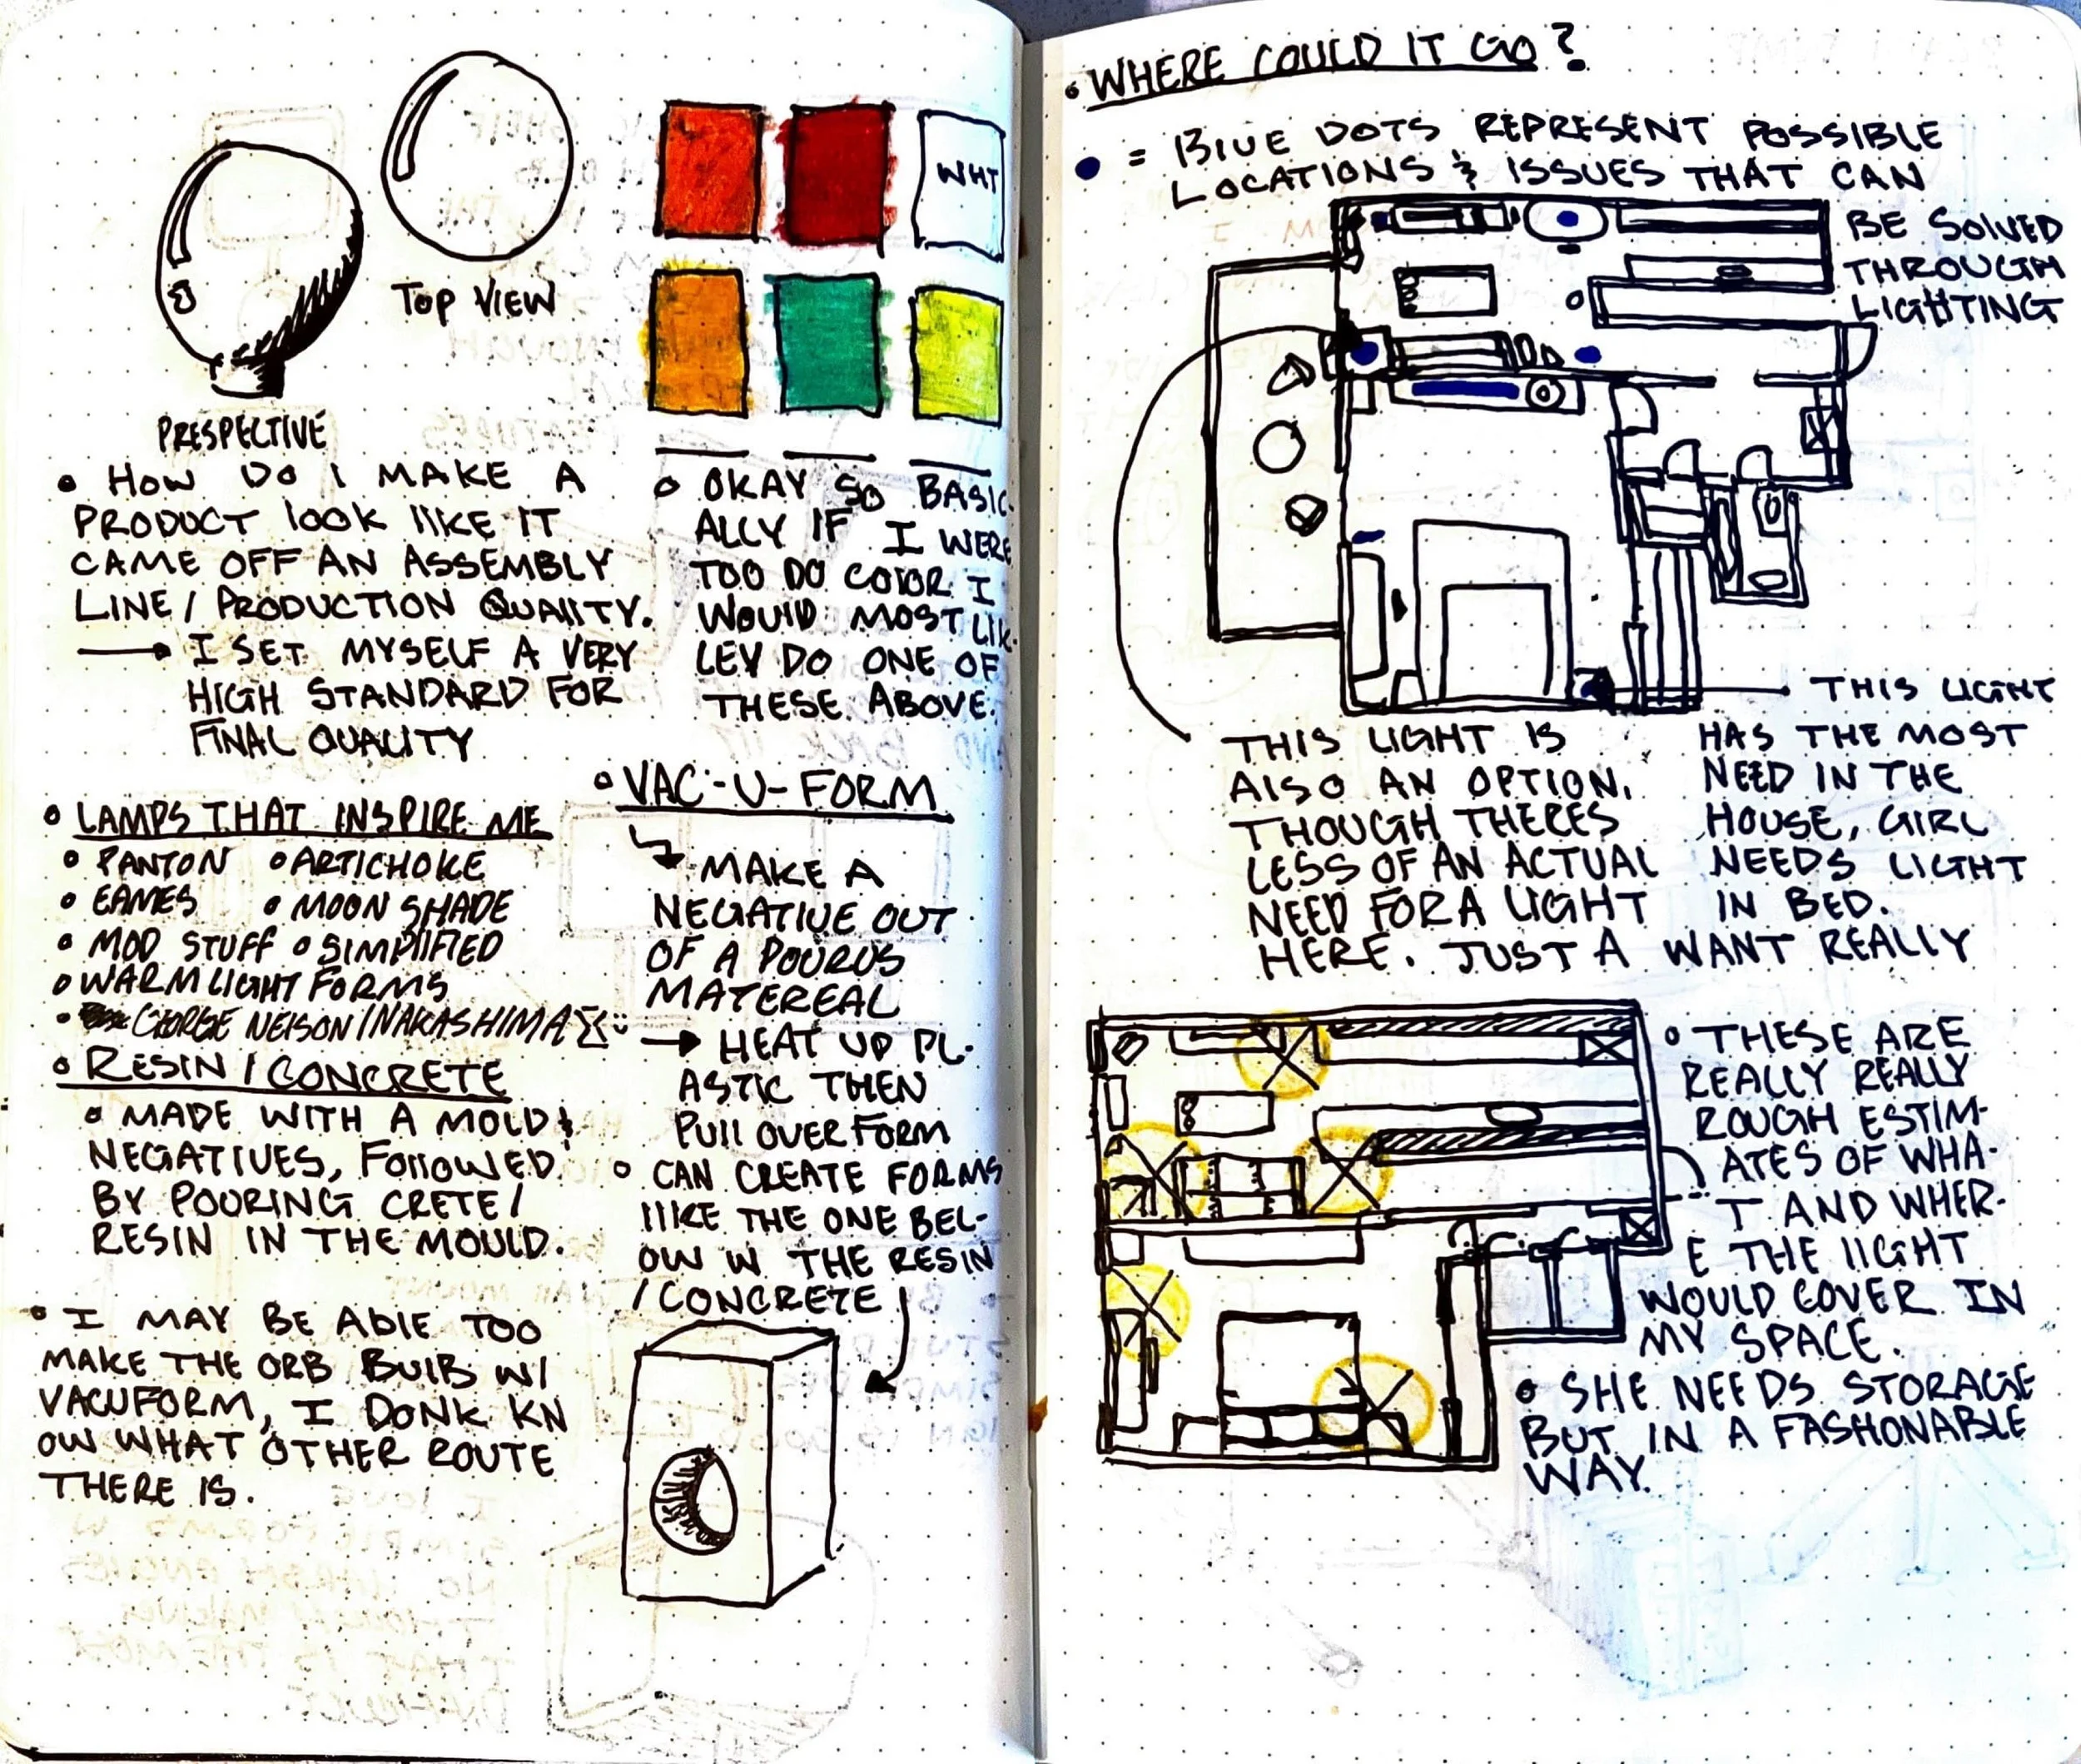 WHT
TOP VIEW
PRESPECTIVE
• HOW DO I MAKE A
PRODUCT lOOK lIKE IT
CAME OFF AN ASSEMBLY
LINE / PRODUCTION QUALITY.
→ I SET MYSELF A VERY
HIGH STANDARD FOR
FINAL QUALITY
• OKAY SO BASIC-
ALLY IF I WERE
TOO DO COlOR I
WOUlD MOST LIK-
LEY DO ONE OF
THESE ABOVE.
• LAMPS THAT INSPIRE ME
• PANTON • ARTICHOKE
• EAMES • MOON SHADE
• MOD STUFF • SIMPlIFIED
• WARM LIGHT FORMS
• GEORGE NElSON / NAKASHIMA
• RESIN / CONCRETE
• MADE WITH A MOLD &
NEGATIVES, FOllOWED
BY POURING CRETE /
RESIN IN THE MOULD.
• I MAY BE AblE TOO
MAKE THE ORB BUlB W/
VACUFORM, I DONK KN
OW WHAT OTHER ROUTE
THERE IS.
• VAC-U-FORM
MAKE A
NEGATIVE OUT
OF A POURUS
MATEREAL
→ HEAT UP PL-
ASTIC THEN
PUll OVER FORM
• CAN CREATE FORMS
lIKE THE ONE BEL-
OW W THE RESIN
/ CONCRETE
• WHERE COULD IT GO?
• = BlUE DOTS REPRESENT POSSIBLE
LOCATIONS & ISSUES THAT CAN
BE SOlVED
THROUGH
LIGHTING
THIS LIGHT IS
AlSO AN OPTION.
THOUGH THERES
LESS OF AN ACTUAL
NEED FOR A LIGHT
HERE. JUST A WANT REALLY
THIS LIGHT
HAS THE MOST
NEED IN THE
HOUSE, GIRL
NEEDS LIGHT
IN BED.
• THESE ARE
REALLY REALLY
ROUGH ESTIM-
ATES OF WHA-
T AND WHER-
E THE lIGHT
WOULD COVER IN
MY SPACE.
• SHE NEEDS STORAGE
BUT IN A FASHONABLE
WAY.